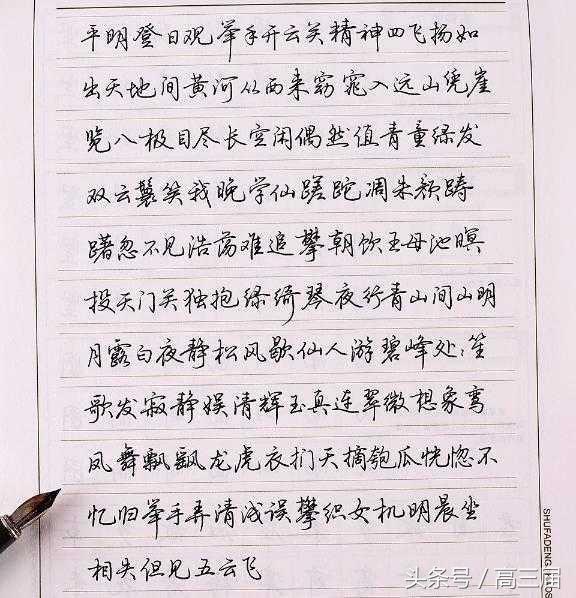 平明登日观举手开云关精神四飞扬如
出天地间黄河从西来窈窕入远山凭崖
览八极目尽长空闲偶然值青童绿发
双云鬟笑我晚学仙蹉跎凋朱颜踌
躇忽不见浩荡难追攀朝饮王母池暝
投天门关独抱绿绮琴夜行青山间山明
月露白夜静松风歇仙人游碧峰处处笙
歌发寂静娱清辉玉真连翠微想象鸾
凤舞飘飖龙虎衣扪天摘匏瓜恍惚不
忆归举手弄清浅误攀织女机明晨坐
相失但见五云飞
SHUFADENG
头条号/高三届